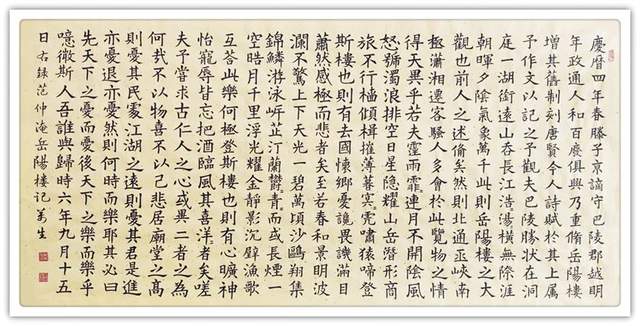 慶曆四年春滕子京謫守巴陵郡越明
年政通人和百廢俱興乃重脩岳陽樓
增其舊制刻唐賢今人詩賦於其上屬
予作文以記之予觀夫巴陵勝狀在洞
庭一湖銜遠山吞長江浩〻湯〻橫無際涯
朝暉夕陰氣象萬千此則岳陽樓之大
觀也前人之述備矣然則北通巫峽南
極瀟湘遷客騷人多會於此覽物之情
得无異乎若夫霪雨霏〻連月不開陰風
怒號濁浪排空日星隱耀山岳潛形商
旅不行檣傾楫摧薄暮冥〻虎嘯猿啼登
斯樓也則有去國懷鄉憂讒畏譏滿目
蕭然感極而悲者矣至若春和景明波
瀾不驚上下天光一碧萬頃沙鷗翔集
錦鱗游泳岸芷汀蘭鬱〻青〻而或長煙一
空皓月千里浮光耀金靜影沉璧漁歌
互答此樂何極登斯樓也則有心曠神
怡寵辱皆忘把酒臨風其喜洋〻者矣嗟
夫予嘗求古仁人之心或異二者之為
何哉不以物喜不以己悲居廟堂之高
則憂其民處江湖之遠則憂其君是進
亦憂退亦憂然則何時而樂耶其必曰
先天下之憂而憂後天下之樂而樂乎
噫微斯人吾誰與歸時六年九月十五
日右錄范仲淹岳陽樓記萬生